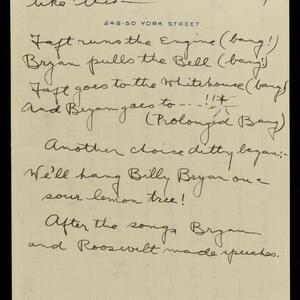 like this—
248-50 YORK STREET.
Taft runs the Engine (bang!)
Bryan pulls the Bell (bang!)
Taft goes to the Whitehouse (bang)
And Bryan goes to - - - !!
(Prolonged Bang)
Another choice ditty began:-
We'll hang Billy Bryan on a
sour lemon tree!
After the songs Bryan
and Roosevelt made speeches.